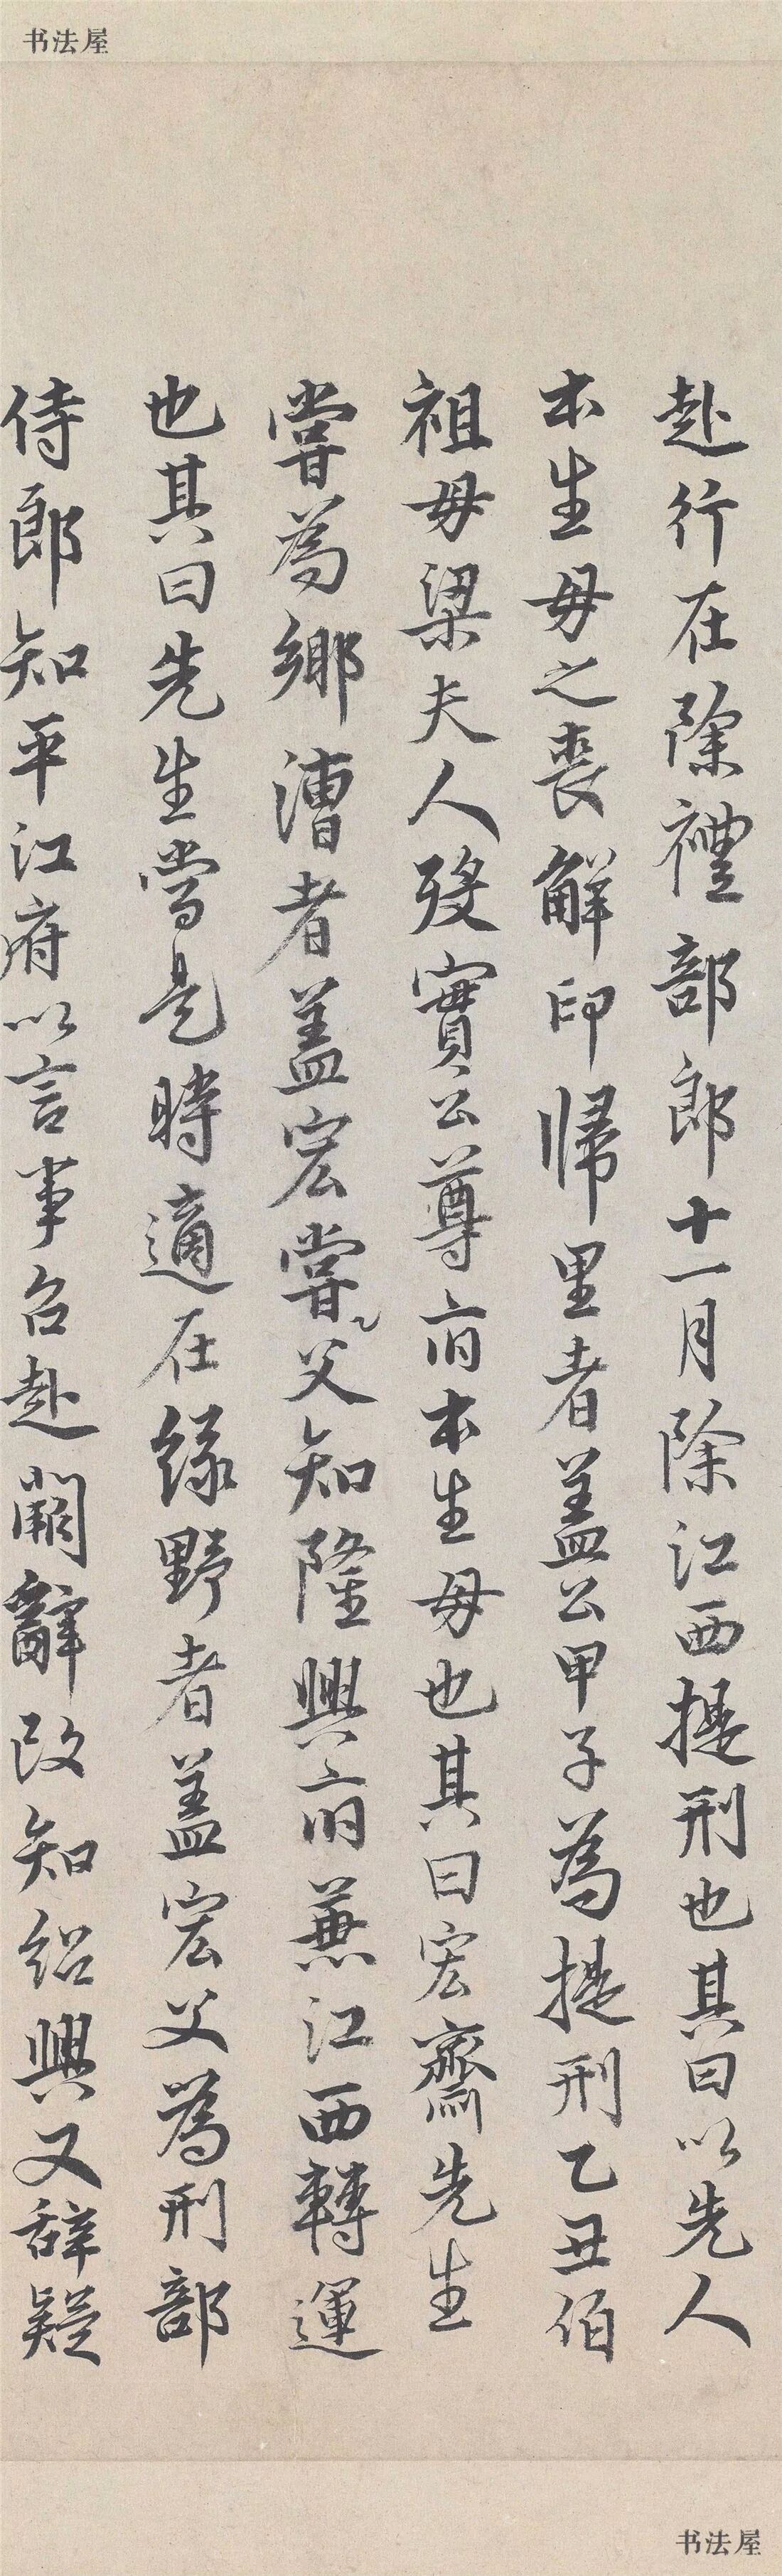 书法屋
赴行在除禮部郎十一月除江西提刑也其曰以先人
本生毋之丧解印歸里者盖公甲子為提刑乙丑伯
祖毋梁夫人殁實公尊府本生毋也其曰宏齋先生
嘗為鄉漕者盖宏嘗父知隆興府兼江西轉運
也其曰先生當是時適在緑野者盖宏父為刑部
侍郎知平江府以言事召赴闕辭改知紹興又辞疑
书法屋